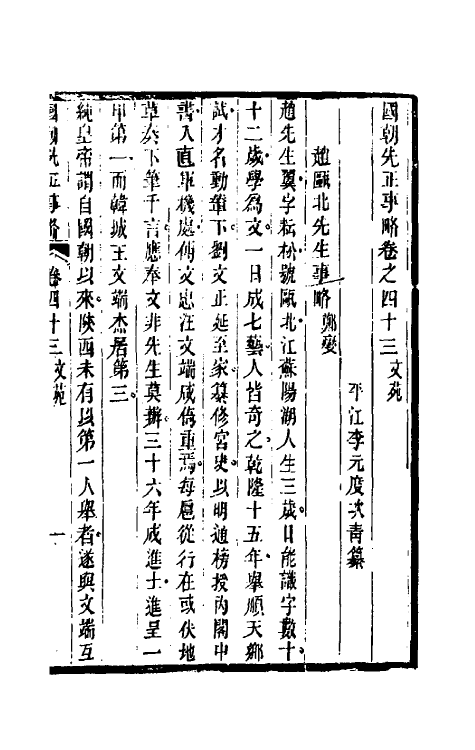 國朝先正事略卷之四十三 文苑
平江李元度次青纂
趙甌北先生事略 鄭燮
趙先生翼字耘松號甌北江蘇陽湖人生三歲日能識字數十
十二歲學為文一日成七藝人皆奇之乾隆十五年舉順天鄉
試才名動輦下劉文正延至家纂修宮史以明通榜授內閣中
書入直軍機處傅文忠汪文端咸倚重焉每扈從行在或伏地
草奏下筆千言應奉文非先生莫辦三十六年成進士進呈一
甲第一而韓城王文端杰居第三
純皇帝謂自國朝以來陝西未有以第一人舉者遂與文端互
國朝先正事略 卷四十三 文苑 一